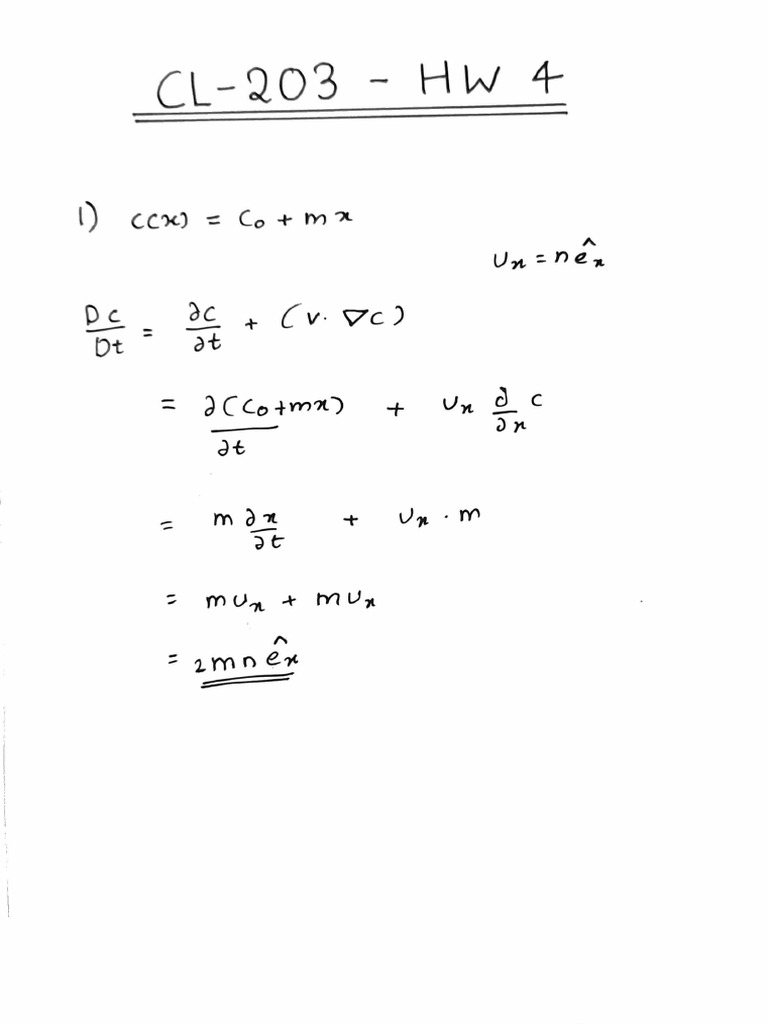 CL-203 - HW 4
1) C(x) = C₀ + mx
Uₓ = n êₓ
Dc/Dt = ∂c/∂t + (v. ∇c)
= ∂(C₀+mx)/∂t + Uₓ ∂/∂x c
= m ∂x/∂t + Uₓ . m
= mUₓ + mUₓ
= 2mn êₓ